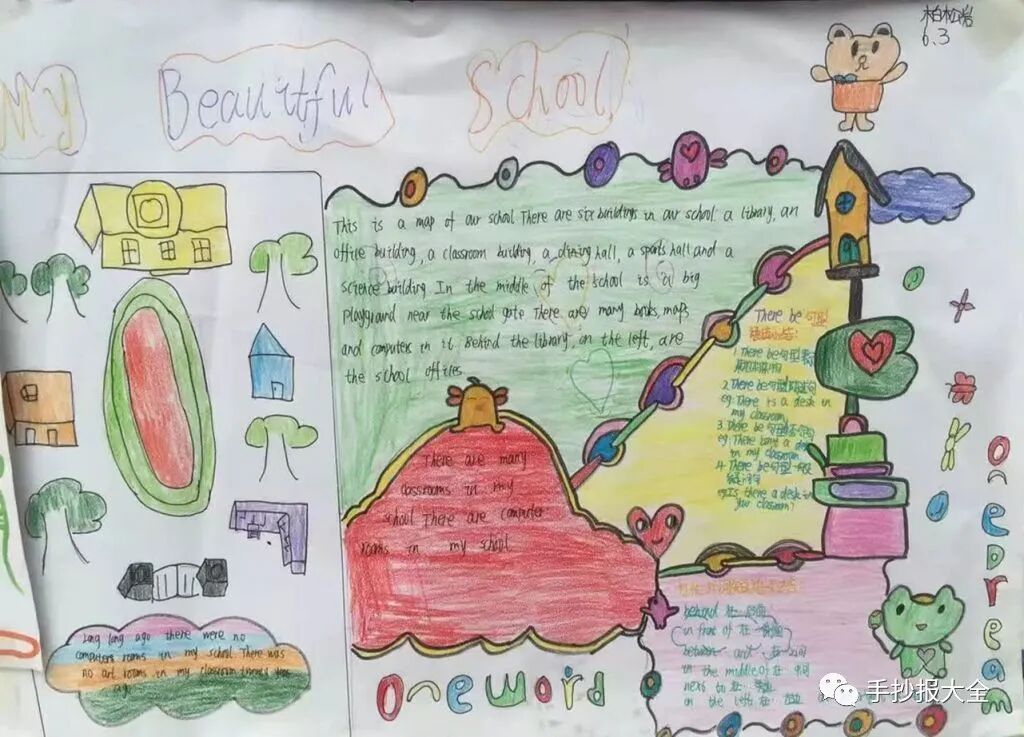 My Beautiful School
6.3
This is a map of our school. There are six buildings in our school: a library, an
office building, a classroom building, a dining hall, a sports hall and a
science building. In the middle of the school is a big
playground near the school gate There are many books, maps
and computers in it. Behind the library, on the left, are
the school offices.
There be 句型
1. There be句型
2. There be句型
eg: There is a desk in
my classroom
3. There be句型
eg: There a desk
in my classroom
4. There be句型一般
疑问句
eg: Is there a desk in
your classroom?
There are many
classrooms in my
school There are computer
rooms in my school
Long long ago there were no
computers rooms in my school There was
no art rooms in my classroom
ago
behind 在
in front of 在
between and 在 之间
in the middle of 在 中间
next to 在
on the left 在
one word
one Dream
手抄报大全